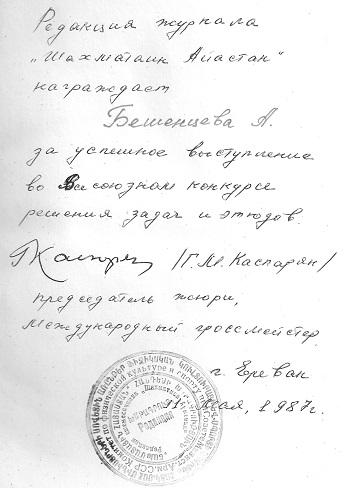 Редакция журнала
„Шахматаин Айастан"
награждает
Бешенцева А.
за успешное выступление
во Всесоюзном конкурсе
решения задач и этюдов.
/Г.М. Каспарян/
председатель жюри,
международный гроссмейстер.
г. Ереван
мая, 1987г.
Редакция